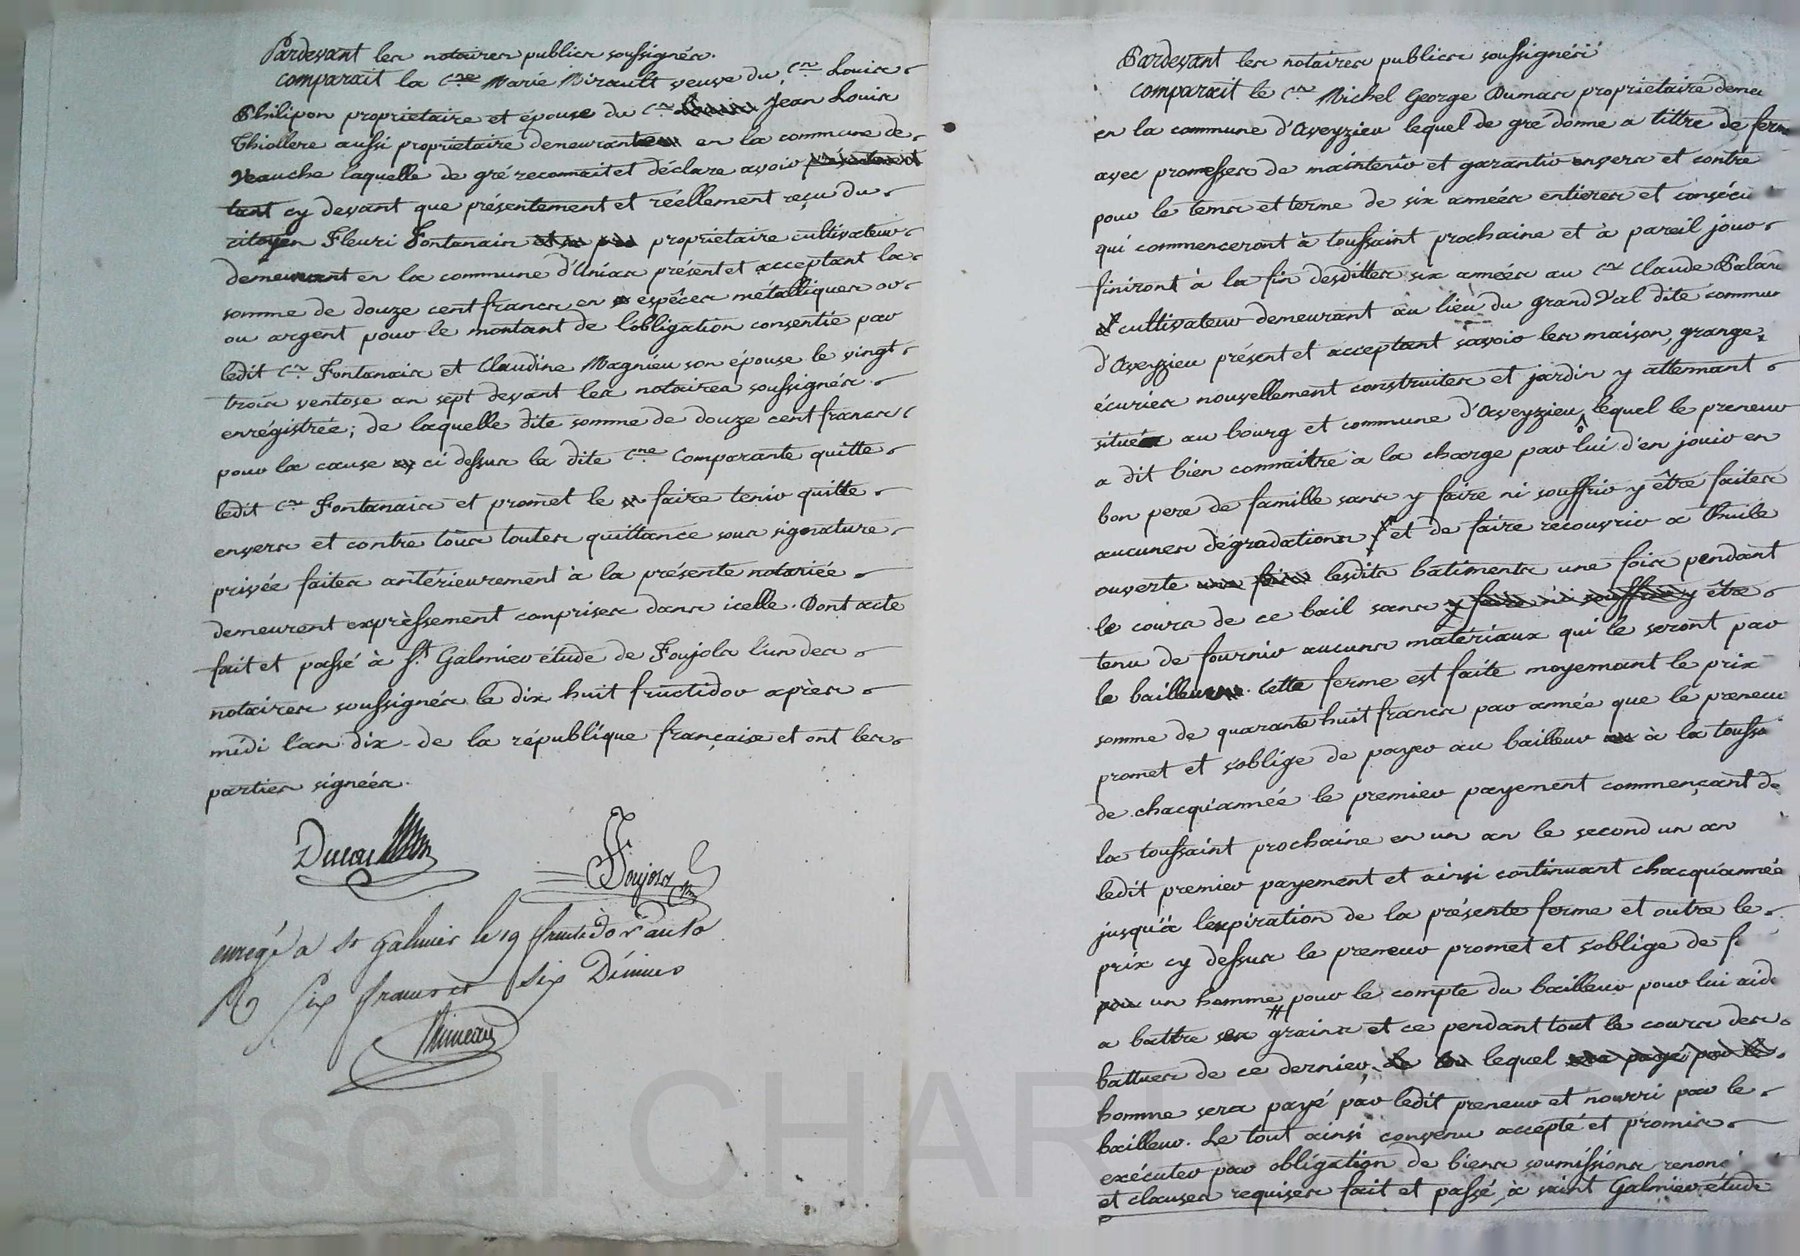 Pardevant les notaires publics soussignés.
comparait la Cne Marie Mirault veuve du Cn Louis
Philipon proprietaire et épouse du Cn Jean Louis
Thiollere aussi proprietaire demeurant en la commune de
Veauche laquelle de gré reconnait et déclare avoir
tant cy devant que présentement et réellement reçu du
citoyen Fleuri Fontanais proprietaire cultivateur
demeurant en la commune d'Unias présent et acceptant la
somme de douze cent francs en espéces métalliques or
ou argent pour le montant de l'obligation consentie par
ledit Cn Fontanais et Claudine Magnieu son épouse le vingt
trois ventose an sept devant les notaires soussignés
enrégistrée; de laquelle dite somme de douze cent francs
pour la cause ci dessus la dite Cne Comparante quitte
ledit Cn Fontanais et promet le faire tenir quitte
envers et contre tous toutes quittance sous signature
privée faites antérieurement à la présente notariée
demeurent expressement comprises dans icelle. Dont acte
fait et passé à St Galmier étude de Foujols l'un des
notaires soussignés le dix huit fructidor après
midi l'an dix de la république française et ont les
parties signées.
Foujols
enregé a St Galmier le 19 fructidor an 10
R six francs six Décimes
Pardevant les notaires publics soussignés
comparait le Cn Michel George Dumas proprietaire deme
en la commune d'Aveyzieu lequel de gré donne a tittre de ferm
avec promesses de maintenir et garantir envers et contre
pour le tems et terme de six années entieres et conséc
qui commenceront à toussaint prochaine et à pareil jour
finiront à la fin desdittes six années au Cn Claude Palan
cultivateur demeurant au lieu du grand Val dite commun
d'Aveyzieu présent et acceptant savoir les maison, grange,
écuries nouvellement construites et jardin y attenant
situés au bourg et commune d'Aveyzieu, lequel le preneur
a dit bien connaitre à la charge par lui d'en jouir en
bon pere de famille sans y faire ni souffrir y être faites
aucunes dégradations et de faire recouvrir a thuile
ouverte lesdits batiments une fois pendant
le cours de ce bail sans y faire ni souffrir y être
tenu de fournir aucuns matériaux qui le seront par
le bailleur. Cette ferme est faite moyennant le prix
somme de quarante huit francs par année que le preneur
promet et s'oblige de payer au bailleur à la toussa
de chacqu'année le premier payement commençant de
la toussaint prochaine en un an le second un an
ledit premier payement et ainsi continuant chacqu'année
jusqu'à l'expiration de la présente ferme et outre le
prix cy dessus le preneur promet et s'oblige de f
un homme pour le compte du bailleur pour lui aid
a battre ses grains et ce pendant tout le cours des
battues de ce dernier, lequel
homme sera payé par ledit preneur et nourri par le
bailleur. Le tout ainsi convenu accepté et promis
exécuter par obligation de biens soumissions renonc
et clauses requises fait et passé à saint Galmier étude
Pascal CHAR